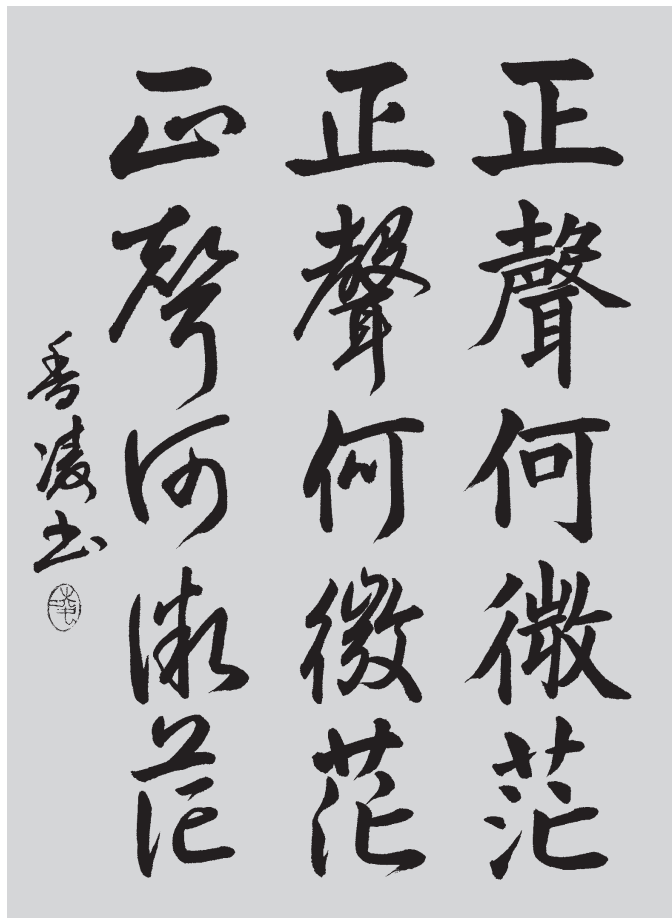 正聲何微茫
正聲何微茫
正聲何微茫
香凌书